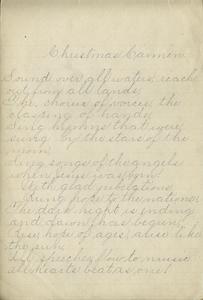 Christmas Carmen
Sound over all waters, reach
out from all lands
The chorus of voices, the
clasping of hands
Sing hymns that were
sung by the stars of the
morn
Sing songs of the angels
when Jesus was born
With glad jubilations
Bring hope to the nations
The dark night is ending
and dawn has begun,
Rise, hope of ages, arise like
the sun
All speeches flow to music
all hearts beat as one!